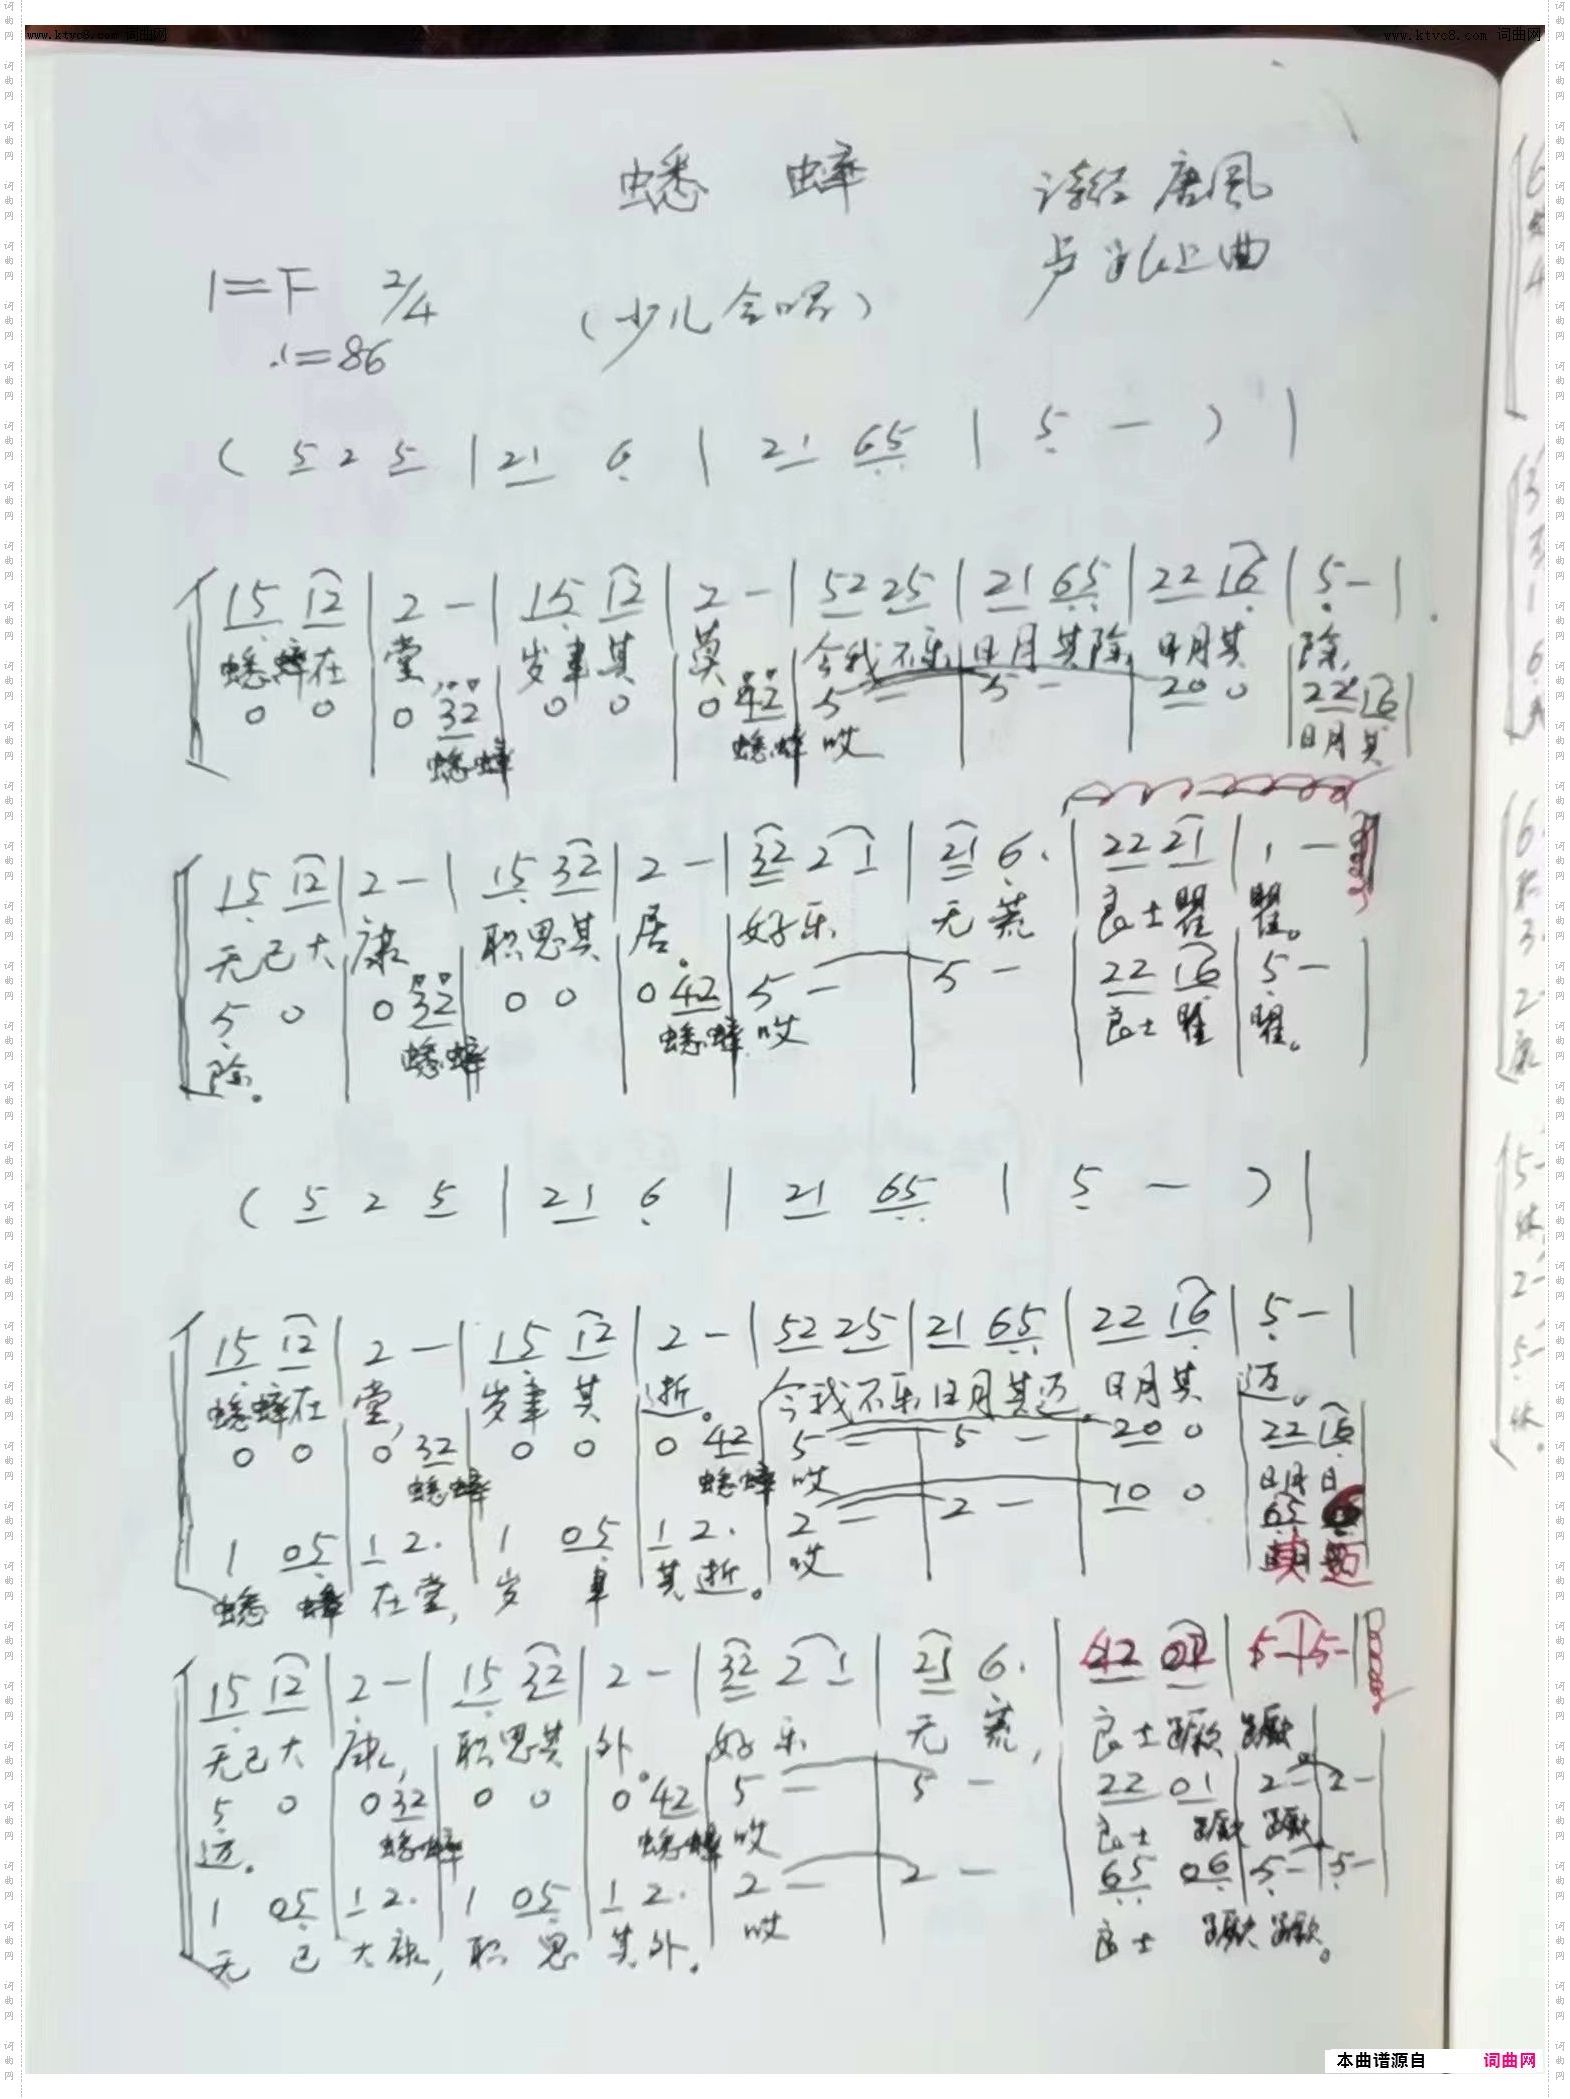 www.ktvc8.com 词曲网
www.ktvc8.com 词曲网
蟋 蟀
诗经 唐風
曲
1=F 2/4
(少儿合唱)
♩=86
( 5 2 5 | 21 6 | 21 65 | 5 — ) |
15 12 | 2 — | 15 12 | 2 — | 52 25 | 21 65 | 22 16 | 5 — |
蟋蟀在 堂 岁聿其 莫 今我不乐 日月其除, 日月其 除,
0 0 | 0 32 | 0 0 | 0 42 | 5 — | 5 — | 20 0 | 22 16 |
蟋蟀 蟋蟀 哎 日月其
15 12 | 2 — | 15 32 | 2 — | 32 2 1 | 21 6. | 22 21 | 1 —
无已大 康 职思其 居。 好乐 无荒 良士瞿 瞿。
5 0 | 0 32 | 0 0 | 0 42 | 5 — | 5 — | 22 16 | 5 — |
除。 蟋蟀 蟋蟀 哎 良士瞿 瞿。
( 5 2 5 | 21 6 | 21 65 | 5 — ) |
15 12 | 2 — | 15 12 | 2 — | 52 25 | 21 65 | 22 16 | 5 — |
蟋蟀在 堂, 岁聿其 逝。 今我不乐 日月其迈, 日月其 迈。
0 0 | 0 32 | 0 0 | 0 42 | 5 — | 5 — | 20 0 | 22 16
蟋蟀 蟋蟀 哎 日月
1 05 | 1 2. | 1 05 | 1 2. | 2 — | 2 — | 10 0 | 65
蟋 蟀 在堂, 岁 聿 其逝。 哎 其 迈
15 12 | 2 — | 15 32 | 2 — | 32 2 1 | 21 6. | 42 | 5 — | 5 — |
无已大 康, 职思其 外。 好乐 无荒, 良士蹶 蹶。
5 0 | 0 32 | 0 0 | 0 42 | 5 — | 5 — | 22 01 | 2 — | 2 —
迈。 蟋蟀 蟋蟀 哎 良士 蹶 蹶
1 05 | 1 2. | 1 05 | 1 2. | 2 — | 2 — | 65 06 | 5 — | 5 —
无 已 大康, 职 思 其外。 哎 良士 蹶 蹶。
本曲谱源自 词曲网